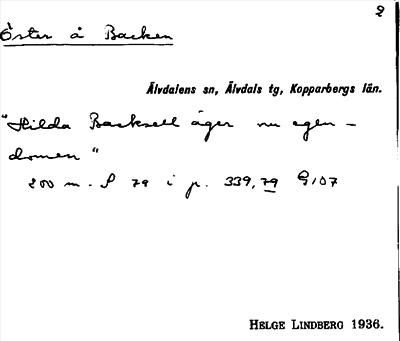 2
Öster å Backen
Älvdalens sn, Älvdals tg, Kopparbergs län.
"Hilda Backsell äger nu egen-
domen"
200 m. S 79 i p. 339,79 G107
HELGE LINDBERG 1936.